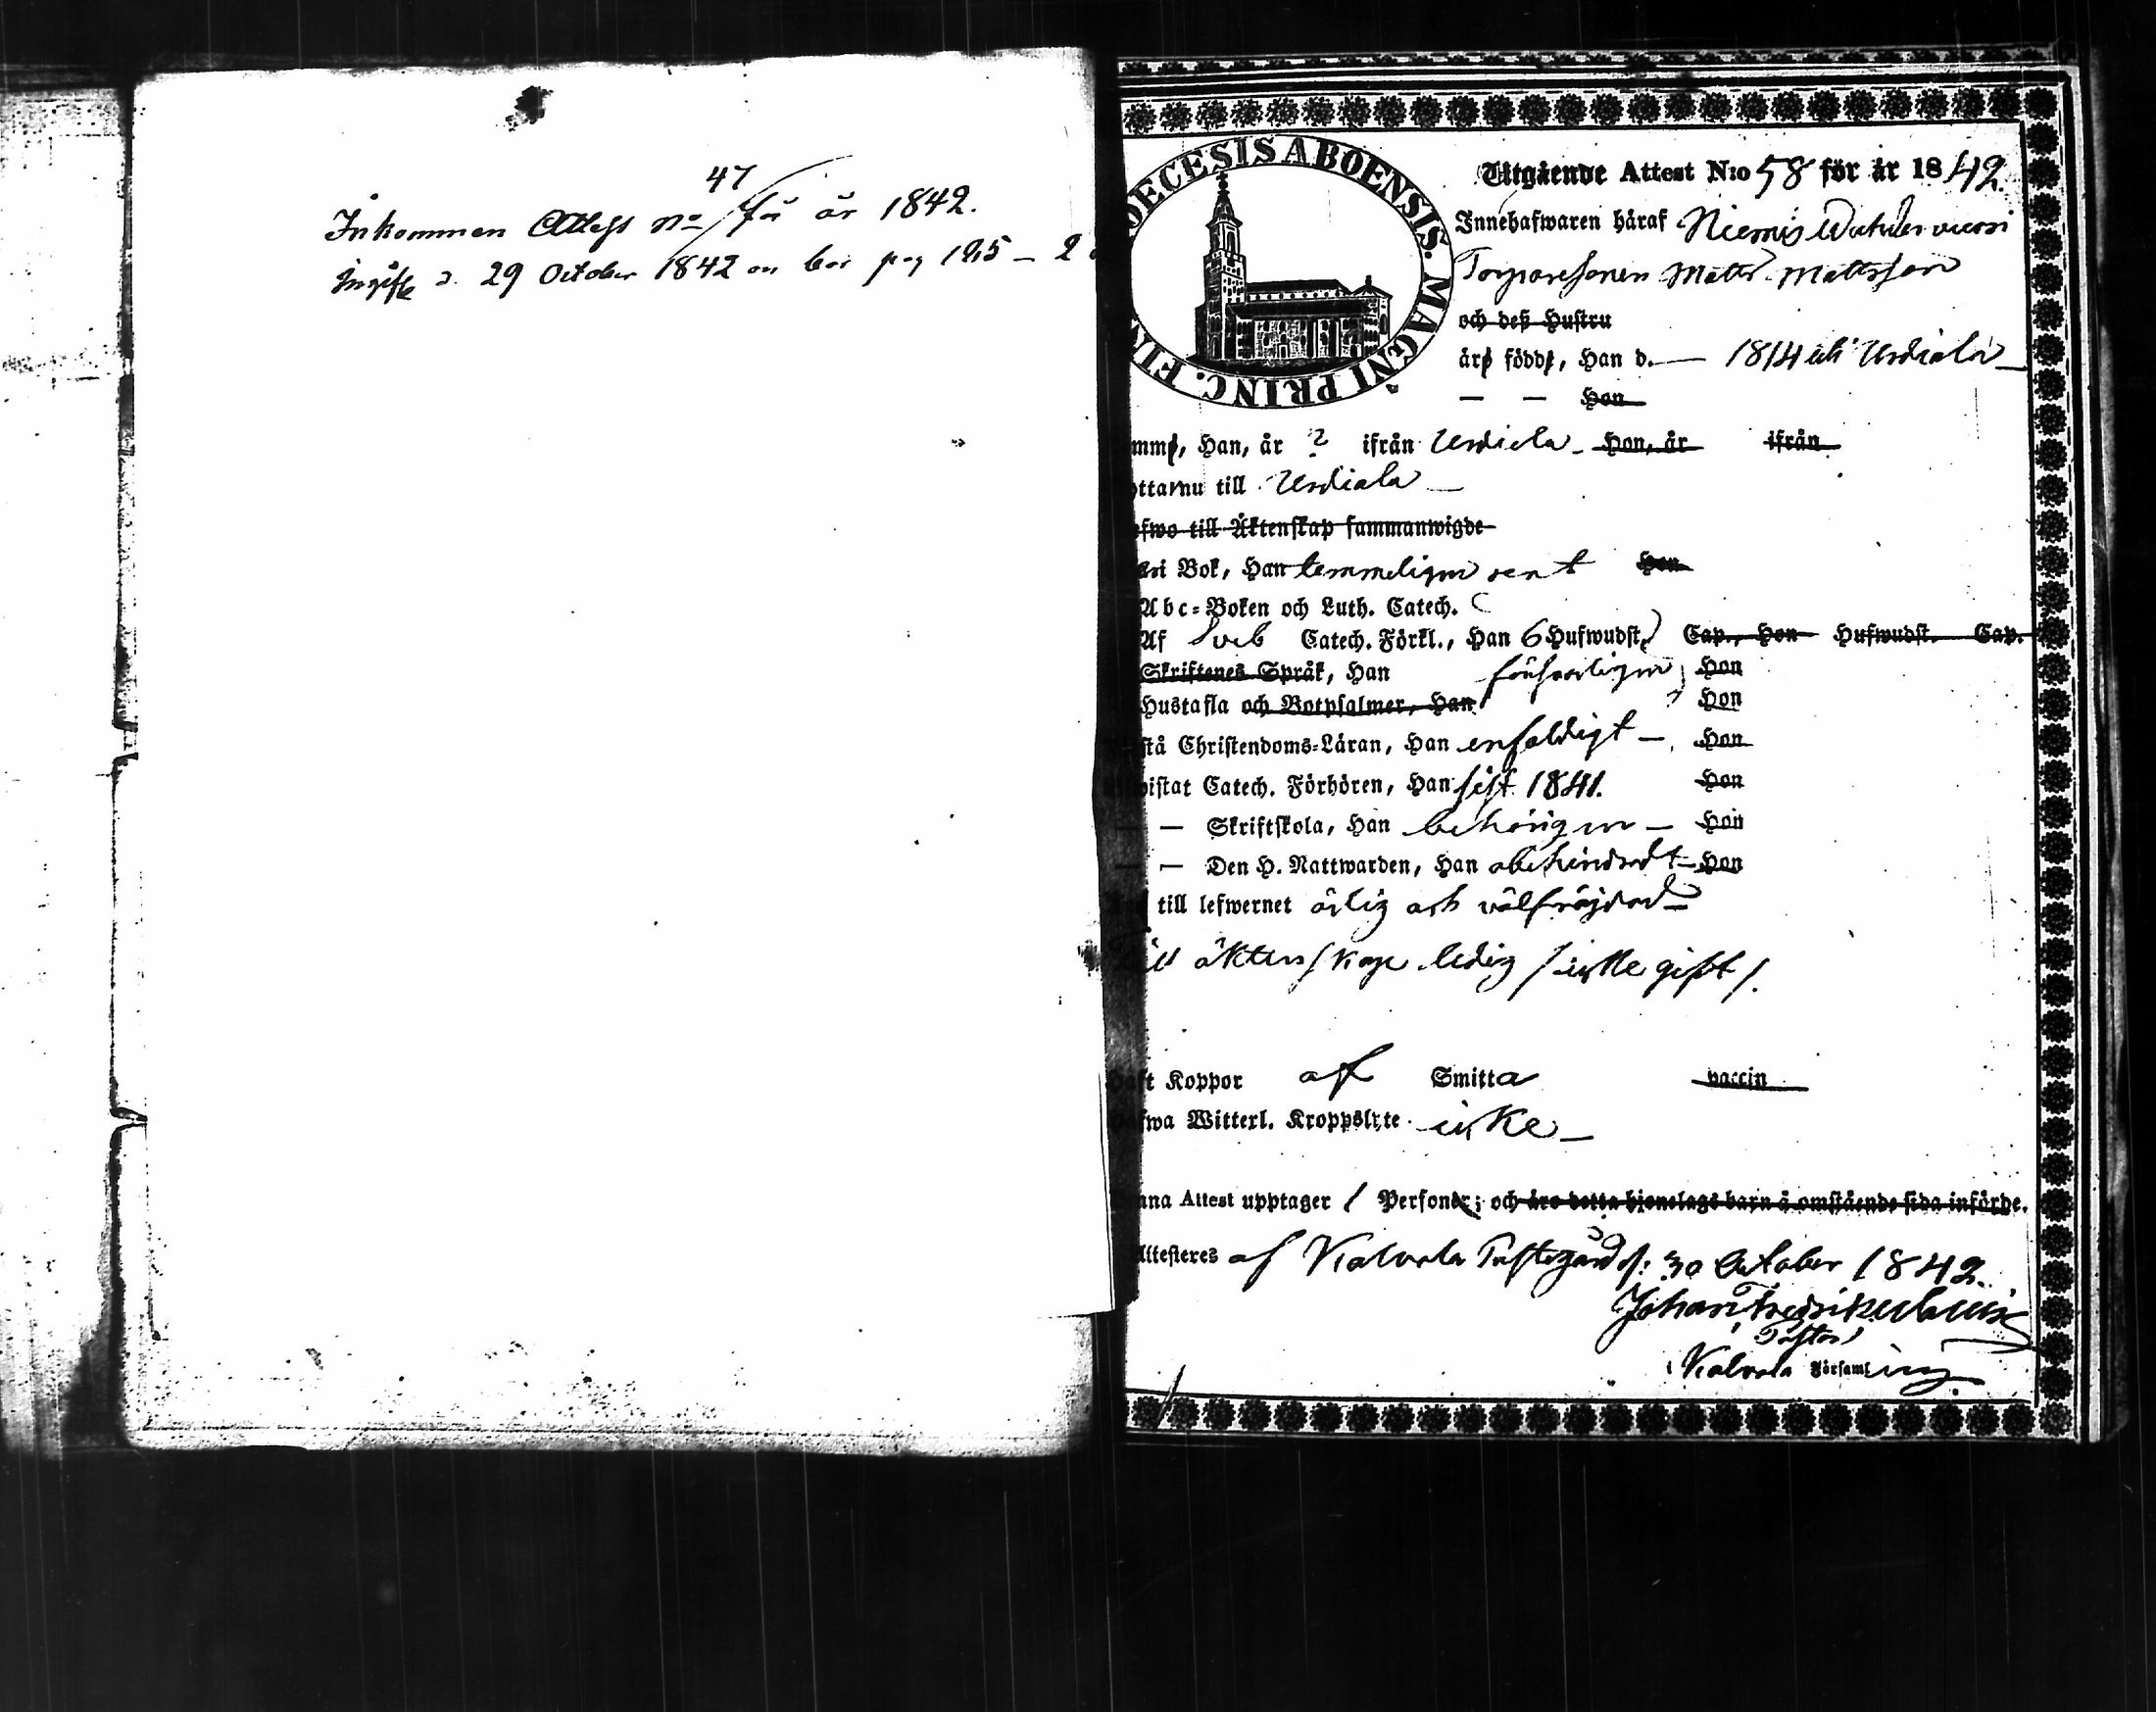 47
Inkommen Attest No för år 1842.
29 October 1842 pag 125 - 2
DIOECESIS ABOENSIS. MAGNI PRINC. FIN
Utgående Attest N:o 58 för år 1842.
Innehafwaren häraf Niemis
Torparesonen Matts Mattsson
och deß Hustru
äro födde, Han d. — 1814 uti Urdiala —
— — Hon
mme, Han, år ? ifrån Urdiala - Hon, år ifrån
ottar nu till Urdiala —
efwo till Äktenskap sammanwigde
i Bok, Han temmeligen rent Hon
Abc-Boken och Luth. Catech.
Af Sveb Catech. Förkl., Han 6 Hufwudst. Cap., Hon Hufwudst. Cap.
Skriftenes Språk, Han försvarligen Hon
Hustafla och Botpsalmer, Han Hon
stå Christendoms-Läran, Han enfaldigt — Hon
istat Catech. Förhören, Han sist 1841. Hon
— Skriftskola, Han behörigen — Hon
— Den H. Nattwarden, Han obehindradt — Hon
till lefwernet ärlig och välfräjdad —
Till äktenskap ledig / icke gift /.
aft Koppor af Smitta vaccin
fwa Witterl. Kroppslyte icke —
nna Attest upptager 1 Personer; och äro detta hjonelags barn å omstående sida införde.
Attesteres af Kalvola Prestegård d: 30 October 1842.
Johan Fredrik
Pastor
i Kalvola Församling.